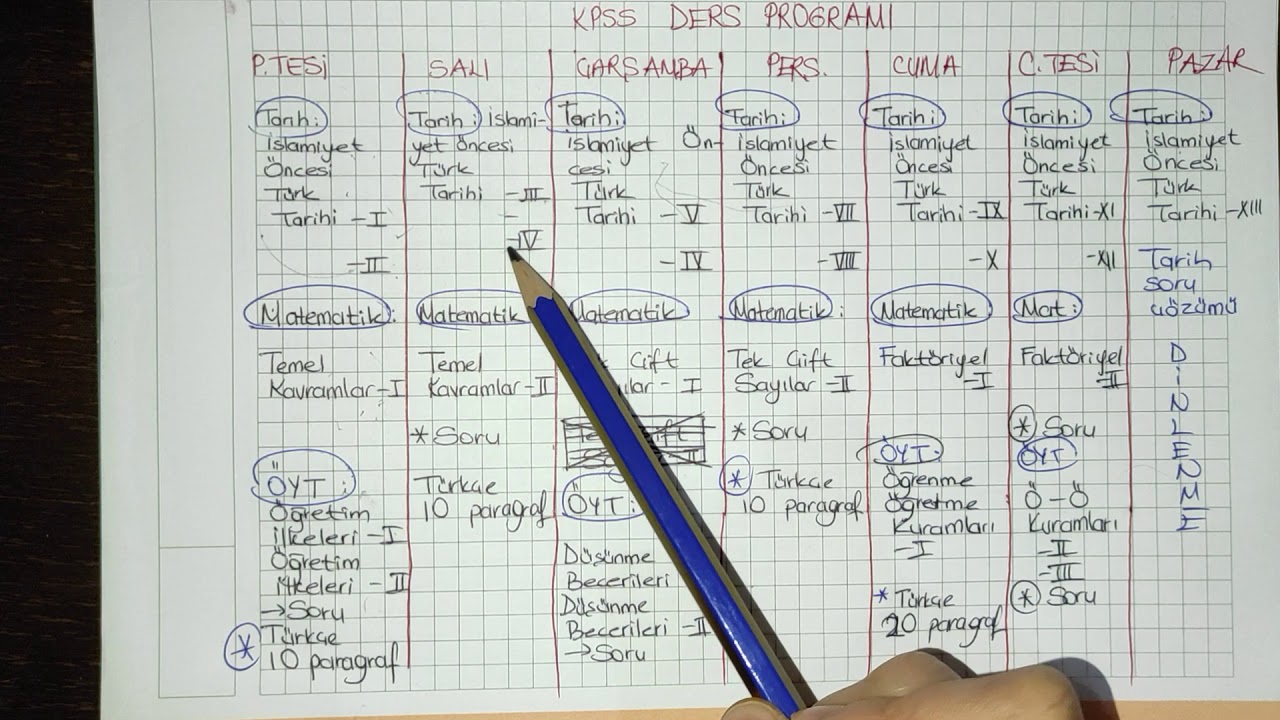 KPSS DERS PROGRAMI
P.TESİ
Tarih:
islamiyet
Öncesi
Türk
Tarihi -I
-II
Matematik:
Temel
Kavramlar-I
ÖYT:
Öğretim
ilkeleri -I
Öğretim
ilkeleri -II
→Soru
* Türkçe
10 paragraf
SALI
Tarih: islami-
yet öncesi
Türk
Tarihi -III
-IV
Matematik
Temel
Kavramlar -II
* Soru
Türkçe
10 paragraf
ÇARŞAMBA
Tarih:
islamiyet Ön-
cesi
Türk
Tarihi -V
-IV
Matematik
Çift
-I
ÖYT:
Düşünme
Becerileri
Düşünme
Becerileri -II
→Soru
PERS.
Tarih:
islamiyet
Öncesi
Türk
Tarihi -VII
-VIII
Matematik:
Tek Çift
Sayılar -II
* Soru
* Türkçe
10 paragraf
CUMA
Tarih:
islamiyet
Öncesi
Türk
Tarihi -IX
-X
Matematik
Faktöriyel
-I
ÖYT:
Öğrenme
Öğretme
Kuramları
-I
* Türkçe
20 paragraf
C.TESİ
Tarih:
islamiyet
Öncesi
Türk
Tarihi -XI
-XII
Mat:
Faktöriyel
-II
* Soru
ÖYT
Ö-Ö
Kuramları
-II
-III
* Soru
PAZAR
Tarih:
islamiyet
Öncesi
Türk
Tarihi -XIII
Tarih
soru
çözümü
DİNLENME